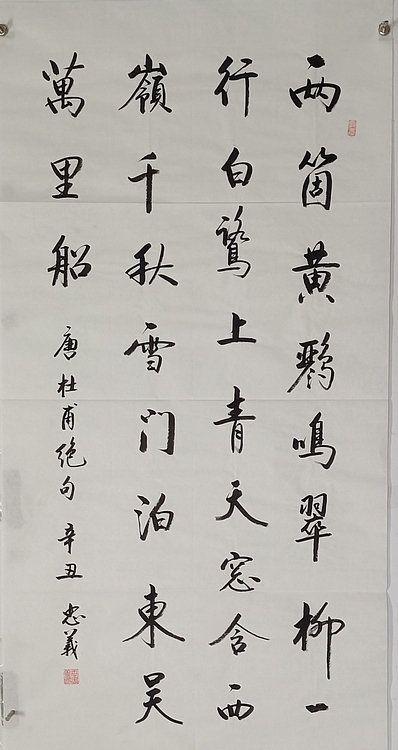 两箇黄鸝鳴翠柳一
行白鷺上青天窓含西
嶺千秋雪门泊東吴
萬里船
唐杜甫绝句 辛丑 忠義